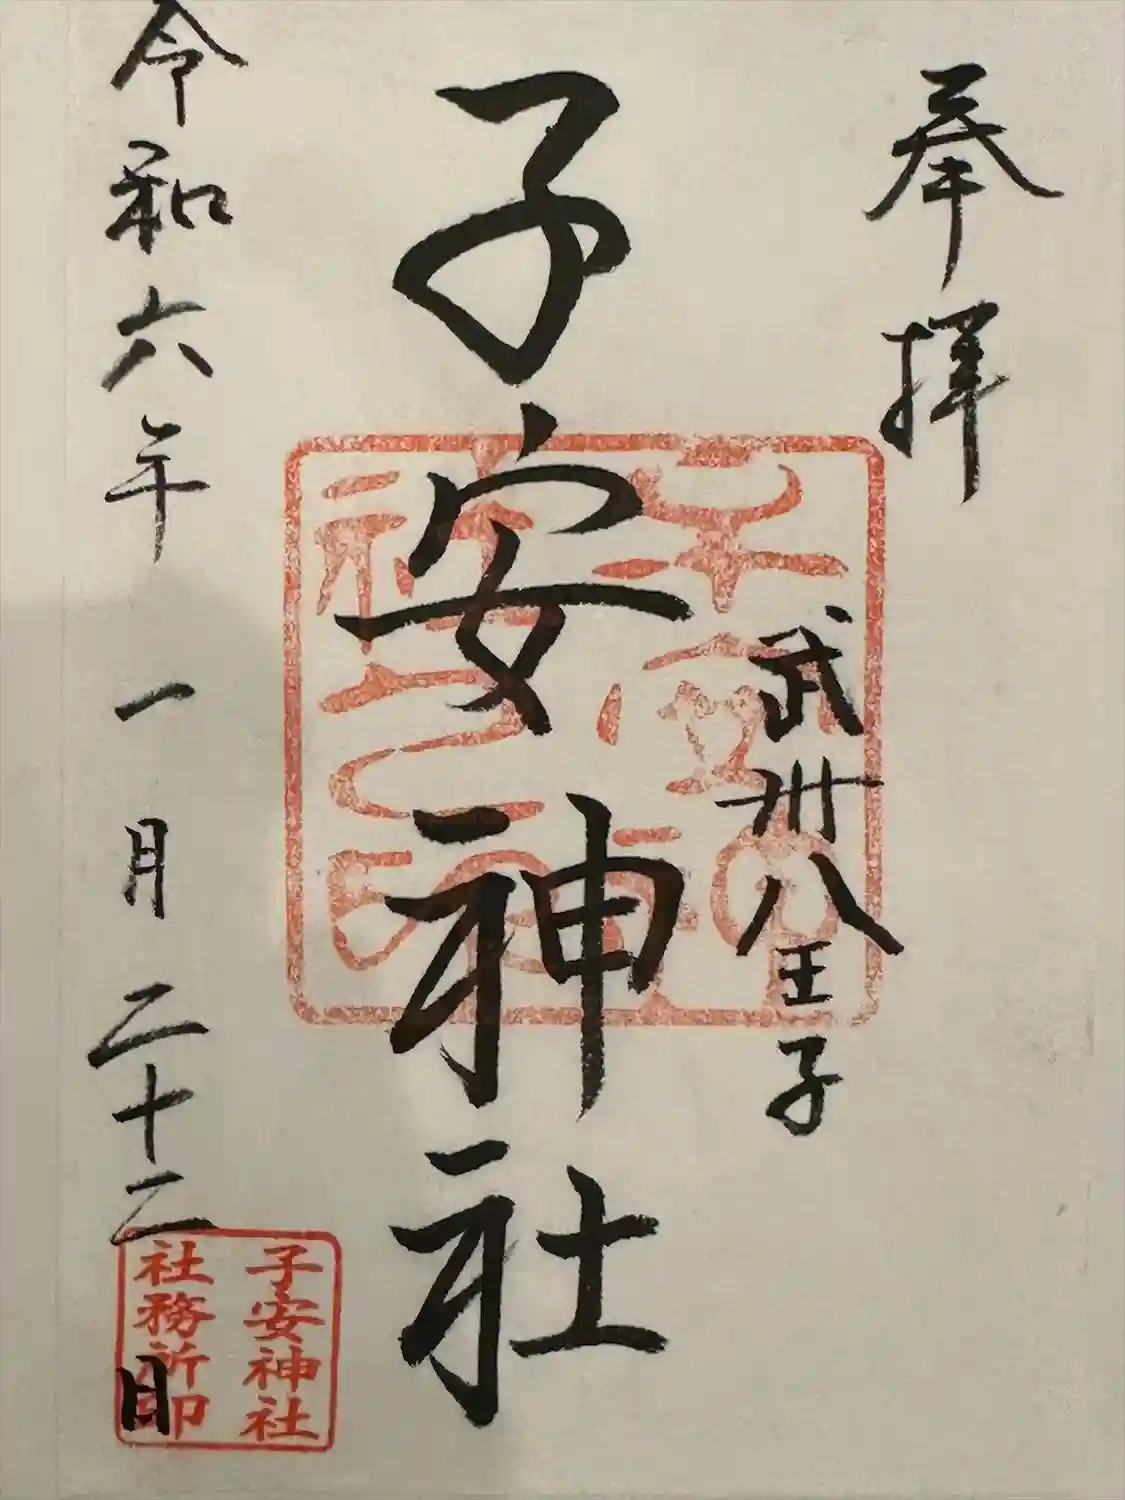 奉拝
武州八王子
子安神社
令和六年一月二十二日
子安神社
社務所印